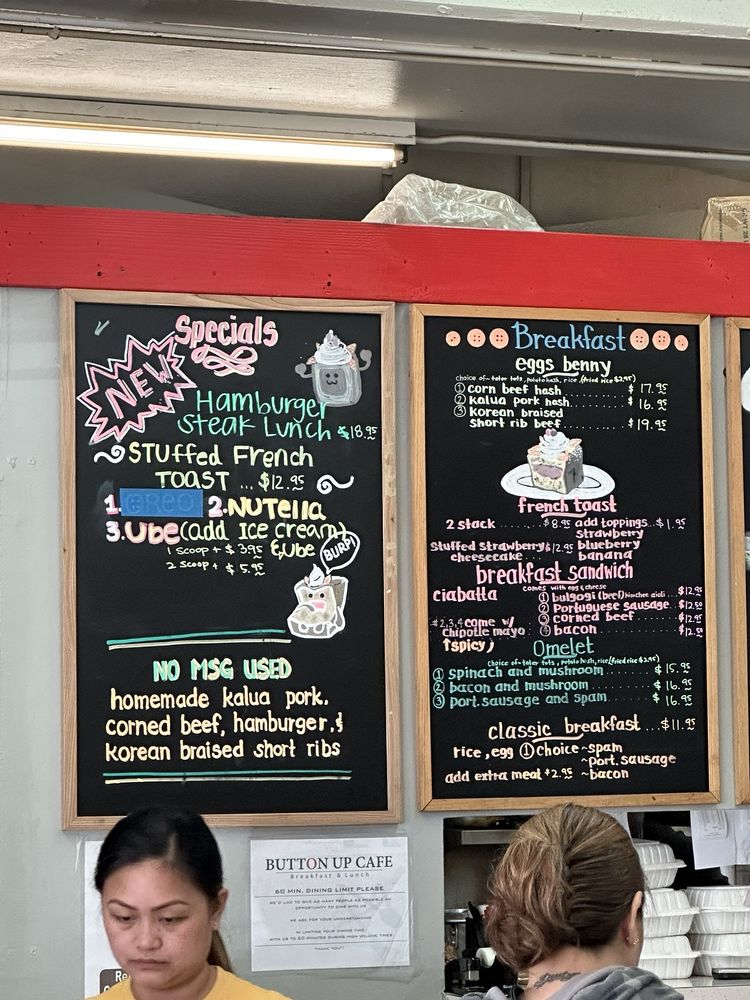 Specials
NEW
Hamburger
Steak Lunch $18.95
Stuffed French
Toast ... $12.95
1. OREO 2. Nutella
3. Ube (add Ice cream)
1 scoop + $ 3.95 & Ube
2 scoop + $ 5.95
BURP!
NO MSG USED
homemade kalua pork,
corned beef, hamburger, &
korean braised short ribs
Breakfast
eggs benny
choice of~ tater tots, potato hash, rice, (fried rice $2.95)
① corn beef hash ..... $ 17.95
② kalua pork hash ..... $ 16.95
③ korean braised
short rib beef ..... $19.95
french toast
2 stack ........ $8.95 add toppings... $1.95
strawberry
Stuffed strawberry $12.95 blueberry
cheesecake ... banana
breakfast sandwich
comes with egg & cheese
ciabatta ① bulgogi (beef) kimchee aioli .. $12.95
② Portuguese sausage .. $12.50
③ corned beef ..... $12.95
#2,3,4 come w/ ④ bacon ..... $12.50
chipotle mayo
(spicy)
Omelet
choice of~ tater tots, potato hash, rice (fried rice $2.95)
① spinach and mushroom ..... $ 15.95
② bacon and mushroom ..... $ 16.95
③ port. sausage and spam. ..... $ 16.95
classic breakfast ... $11.95
rice, egg ① choice ~spam
~port. sausage
add extra meat $2.95 ~bacon
BUTTON UP CAFE
Breakfast & Lunch
60 MIN. DINING LIMIT PLEASE
WE'D LIKE TO GIVE AS MANY PEOPLE AS POSSIBLE AN
OPPORTUNITY TO DINE WITH US
WE ASK FOR YOUR UNDERSTANDING
IN LIMITING YOUR DINING TIME
WITH US TO 60 MINUTES DURING HIGH VOLUME TIMES
THANK YOU!!